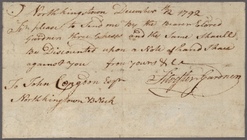 North Kingstown December 1792
Sr please to Send me By the Bearer
Gardner three Cheeses and the Same Shall
Be Discounted upon a Note of hand I have
against you from yours &c
To John Congdon Esqr Gardner
North kingstown